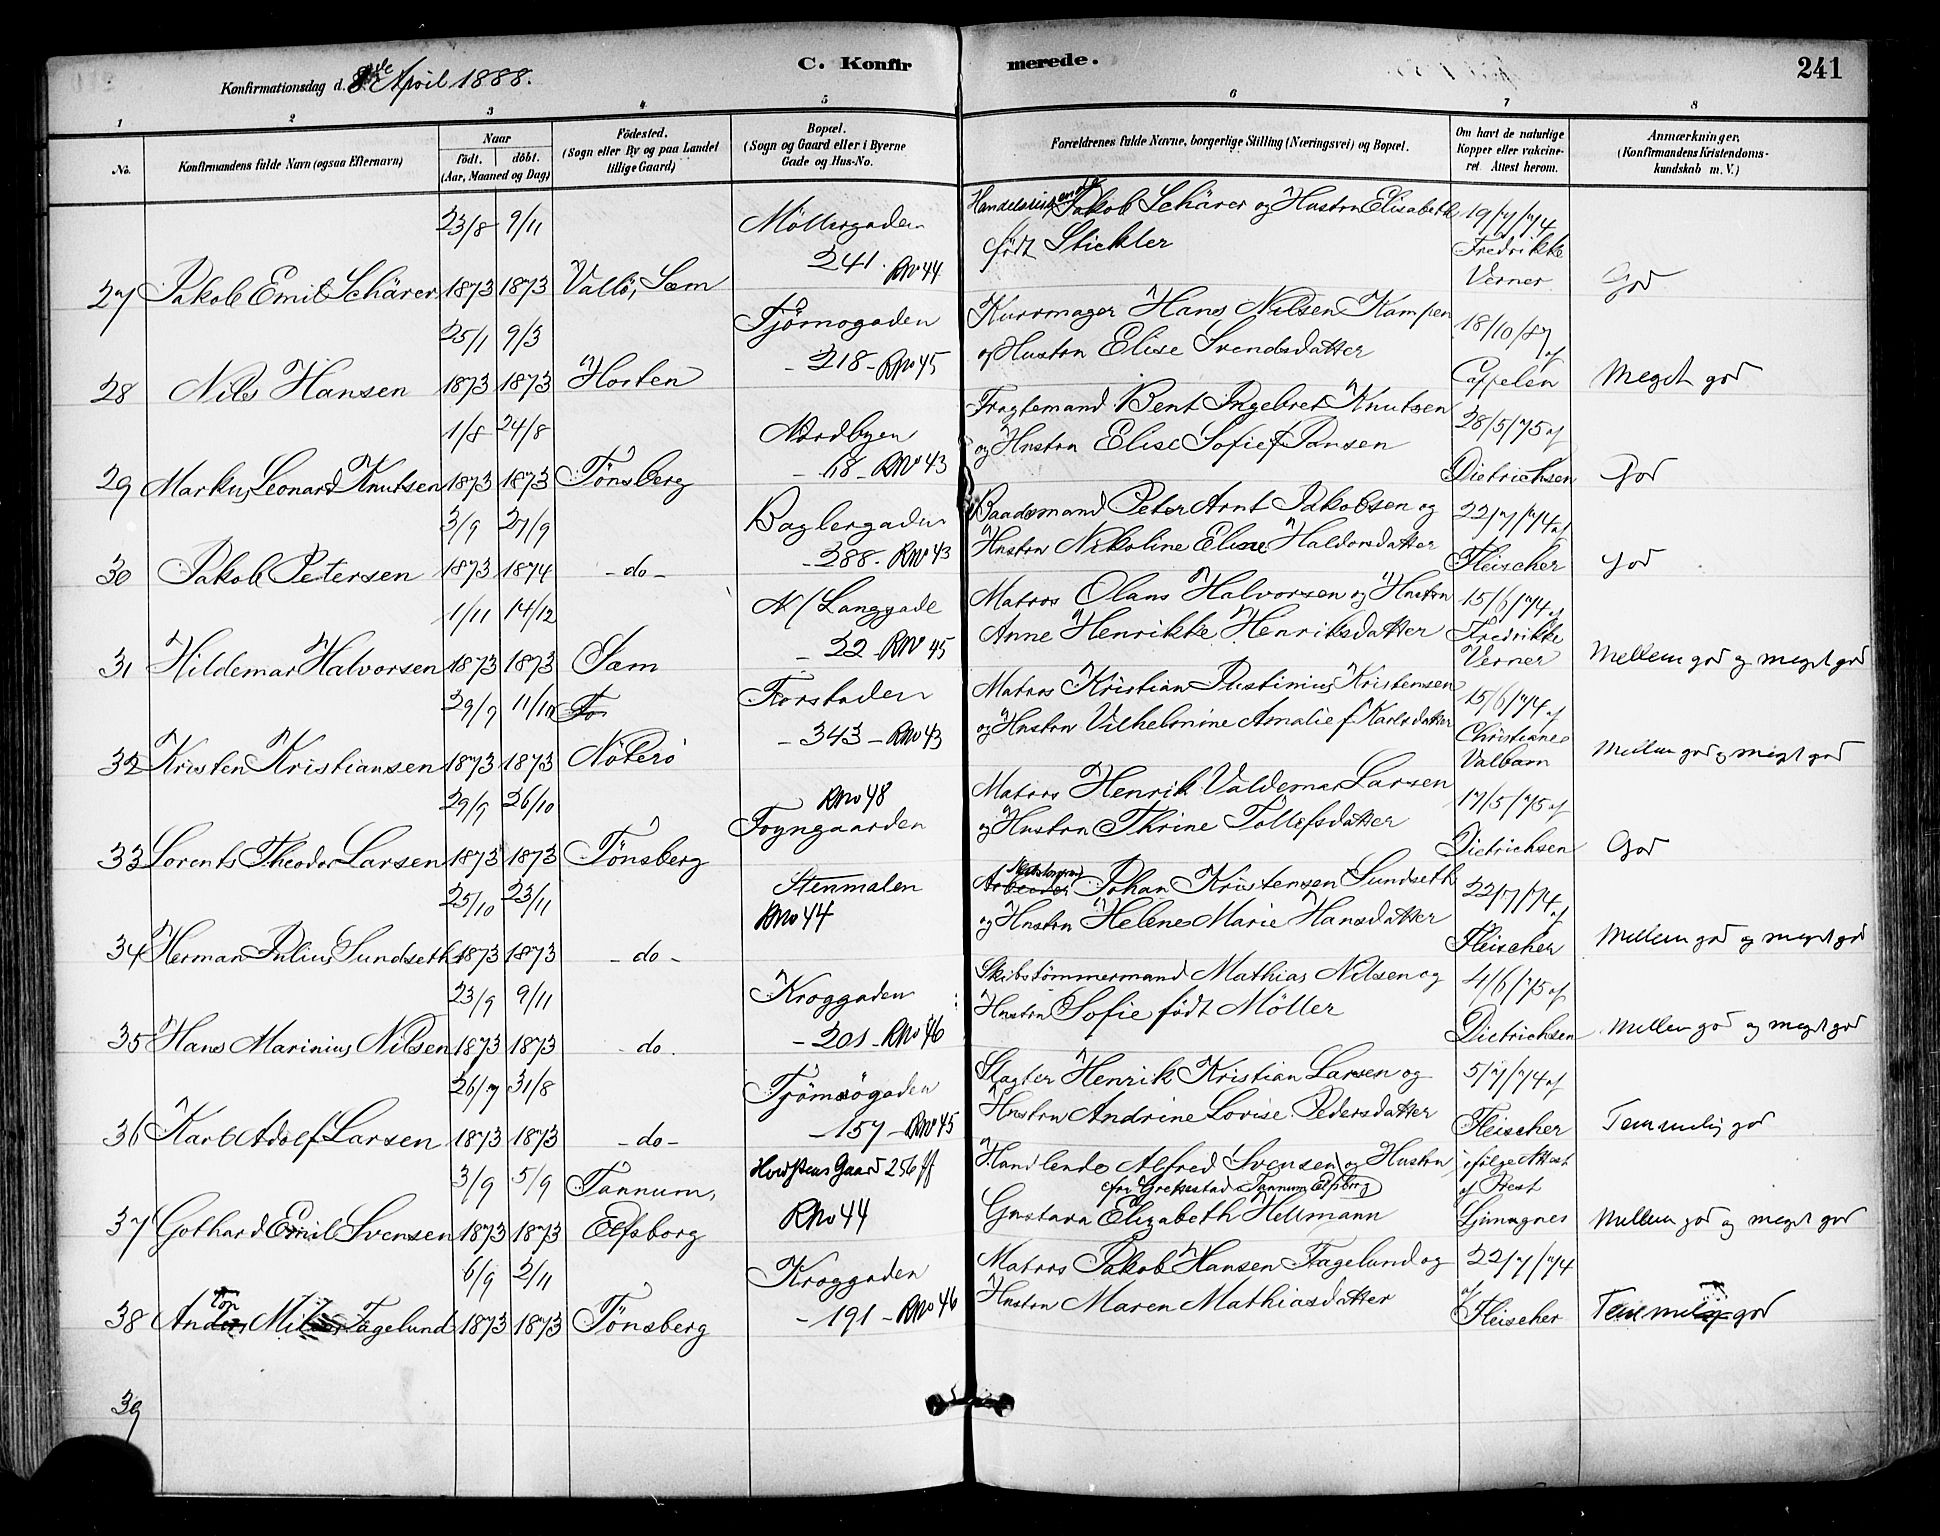 C. Konfirmerede.
241
Konfirmationsdag d. 8de April 1888.
1 2 3 4 5 6 7 8
No.
Konfirmandens fulde Navn (ogsaa Efternavn)
Naar
født. døbt.
(Aar, Maaned og Dag)
Fødested.
(Sogn eller By og paa Landet
tillige Gaard)
Bopæl.
(Sogn og Gaard eller i Byerne
Gade og Hus-No.
Forældrenes fulde Navne, borgerlige Stilling (Næringsvei) og Bopæl.
Om havt de naturlige
Kopper eller vakcine-
ret. Attest herom.
Anmærkninger.
(Konfirmandens Kristendoms-
kundskab m. V.)
23/8 9/11 Møllergaden Jakob Schärer og Hustru Elisabeth 19/7/74
241. RNo 44 født Stickler Fredrikke
27 Jakob Emil Schärer 1873 1873 Vallø, Sem Verner God
25/1 9/3 Tjømøgaden Kurvmager Hans Nilsen Kampen 18/10/87 af
- 218 - RNo 45 og Hustru Elise Svendsdatter
28 Nils Hansen 1873 1873 Horten Cappelen Meget god
1/8 24/8 Nordbyen Fragtemand Bent Ingebret Knutsen 28/5/75 af
- 68 - RNo 43 og Hustru Elise Sofie f. Jansen
29 Markus Leonard Knutsen 1873 1873 Tønsberg Dietrichsen God
3/9 27/9 Baglergaden Baadsmand Peter Arnt Jakobsen og 22/7/74 af
- 288 - RNo 43 Hustru Nikoline Eline Haldorsdatter
30 Jakob Petersen 1873 1874 - do - Fleischer God
1/11 14/12 N/Langgade Matros Olaus Halvorsen og Hustru 15/6/74 af
- 22 - RNo 45 Anne Henrikke Henriksdatter Fredrikke
31 Hildemar Halvorsen 1873 1873 Sem Verner Mellem god og meget god
29/9 11/10 Forstaden Matros Kristian Justinius Kristensen 15/6/74 af
- 343 - RNo 43 og Hustru Vilhelmine Amalie f. Karlsdatter Christiane
32 Kristen Kristiansen 1873 1873 Nøterø Valbarn Mellem god og meget god
29/9 26/10 RNo 48 Matros Henrik Valdemar Larsen 17/5/75 af
Foyngaarden og Hustru Thrine Tollefsdatter
33 Lorents Theodor Larsen 1873 1873 Tønsberg Dietrichsen God
25/10 23/11 Stenmalen Arbeider Johan Kristensen Sundseth 22/7/74 af
RNo 44 og Hustru Helene Marie Hansdatter
34 Herman Julius Sundseth 1873 1873 - do - Fleischer Mellem god og meget god
23/9 9/11 Kroggaden Skibstømmermand Mathias Nilsen og 4/6/75 af
- 201 - RNo 46 Hustru Sofie født Møller
35 Hans Marinius Nilsen 1873 1873 - do. Dietrichsen Mellem god og meget god
26/7 31/8 Tjømøgaden Slagter Henrik Kristian Larsen og 5/7/74 af
- 157 - RNo 45 Hustru Andrine Lovise Pedersdatter
36 Karl Adolf Larsen 1873 1873 - do - Fleischer Temmelig god
3/9 5/9 Tannum, Gaard 256 ff Handlende Alfred Svensen og Hustru ifølge Attest
fra Grebbestad Tannum Elfsborg af Prest
37 Gothard Emil Svensen 1873 1873 Elfsborg RNo 44 Gustava Elizabeth Hellmann Ljunggren Mellem god og meget god
6/9 2/11 Kroggaden Matros Jakob Hansen Fagelund og 22/7/74
- 191 - RNo 46 Hustru Maren Mathiasdatter af
38 Fagelund 1873 1873 Tønsberg Fleischer Temmelig god
39